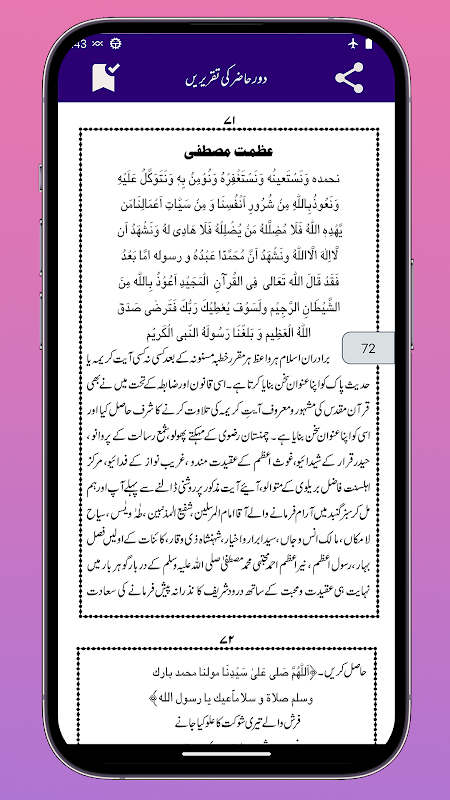 :43
دور حاضر کی تقریریں
۷۱
عظمت مصطفی
نحمدہ وَنَسْتَعِینُه وَنَسْتَغْفِرُهٗ وَنُؤمِنُ بِهٖ وَنَتَوَکَّلُ عَلَیْهِ
وَنَعُوذُبِاللّٰهِ مِنْ شُرُورِ اَنْفُسِنَا وَ مِنْ سَیِّاٰتِ اَعْمَالِنَامَن
یَّهْدِهِ اللّٰهُ فَلَا مُضِلَّلَهٗ مَنْ یُّضْلِلْهُ فَلَا هَادِیَ لَهٗ وَنَشْهَدُ اَن
لَّااِلٰهَ اِلَّااللّٰهُ ونَشْهَدُ اَنَّ مُحَمَّدًا عَبْدُهٗ وَ رسوله امَّا بَعْدُ
فَقَدْ قَالَ اللّٰهُ تَعَالٰی فِی الْقُرآنِ الْمَجِیْدِ اَعُوْذُ بِاللّٰهِ مِنَ
الشَّیْطَانِ الرَّجِیْمِ ولَسَوْفَ یُعْطِیْکَ رَبُّکَ فَتَرضٰی صَدَقَ
اللّٰهُ الْعَظِیْم وَ بَلَّغَنَا رَسُولُهُ النَّبی الْکَرِیْم
72
برادران اسلام ہر واعظ ہر مقرر خطبہ مسنونہ کے بعد کسی نہ کسی آیت کریمہ یا
حدیث پاک کو اپنا عنوان سخن بنایا کرتا ہے۔ اسی قانون اور ضابطہ کے تحت میں نے بھی
قرآن مقدس کی مشہور و معروف آیت کریمہ کی تلاوت کرنے کا شرف حاصل کیا اور
اسی کو اپنا عنوان سخن بنایا ہے۔ چمنستان رضوی کے مہکتے پھولو، شمع رسالت کے پروانو،
حیدر قرار کے شیدائیو، غوث اعظم کے عقیدت مندو، غریب نواز کے فدائیو، مرکز
اہلسنت فاضل بریلوی کے متوالو، آیئے آیت مذکور پر روشنی ڈالنے سے پہلے آپ اور ہم
مل کر سبز گنبد میں آرام فرمانے والے آقا امام المرسلین، شفیع المذنبین، طٰہٰ و یٰس، سیاح
لامکاں، مالک انس و جاں، سید ابرار و اخیار، شہنشاہ ذی وقار، کائنات کے اولیں فصل
بہار، رسول اعظم، نیر اعظم احمد مجتبیٰ محمد مصطفیٰ صلی اللہ علیہ وسلم کے دربار گوہر بار میں
نہایت ہی عقیدت و محبت کے ساتھ درود شریف کا نذرانہ پیش فرمانے کی سعادت
۷۲
حاصل کریں۔ ﴿اَللّٰهُمَّ صَلِّی عَلٰی سَیِّدِنَا مولنا محمد بارک
وسلم صلاة و سلاماًعیک یا رسول الله﴾
فرش والے تیری شوکت کا علو کیا جانے